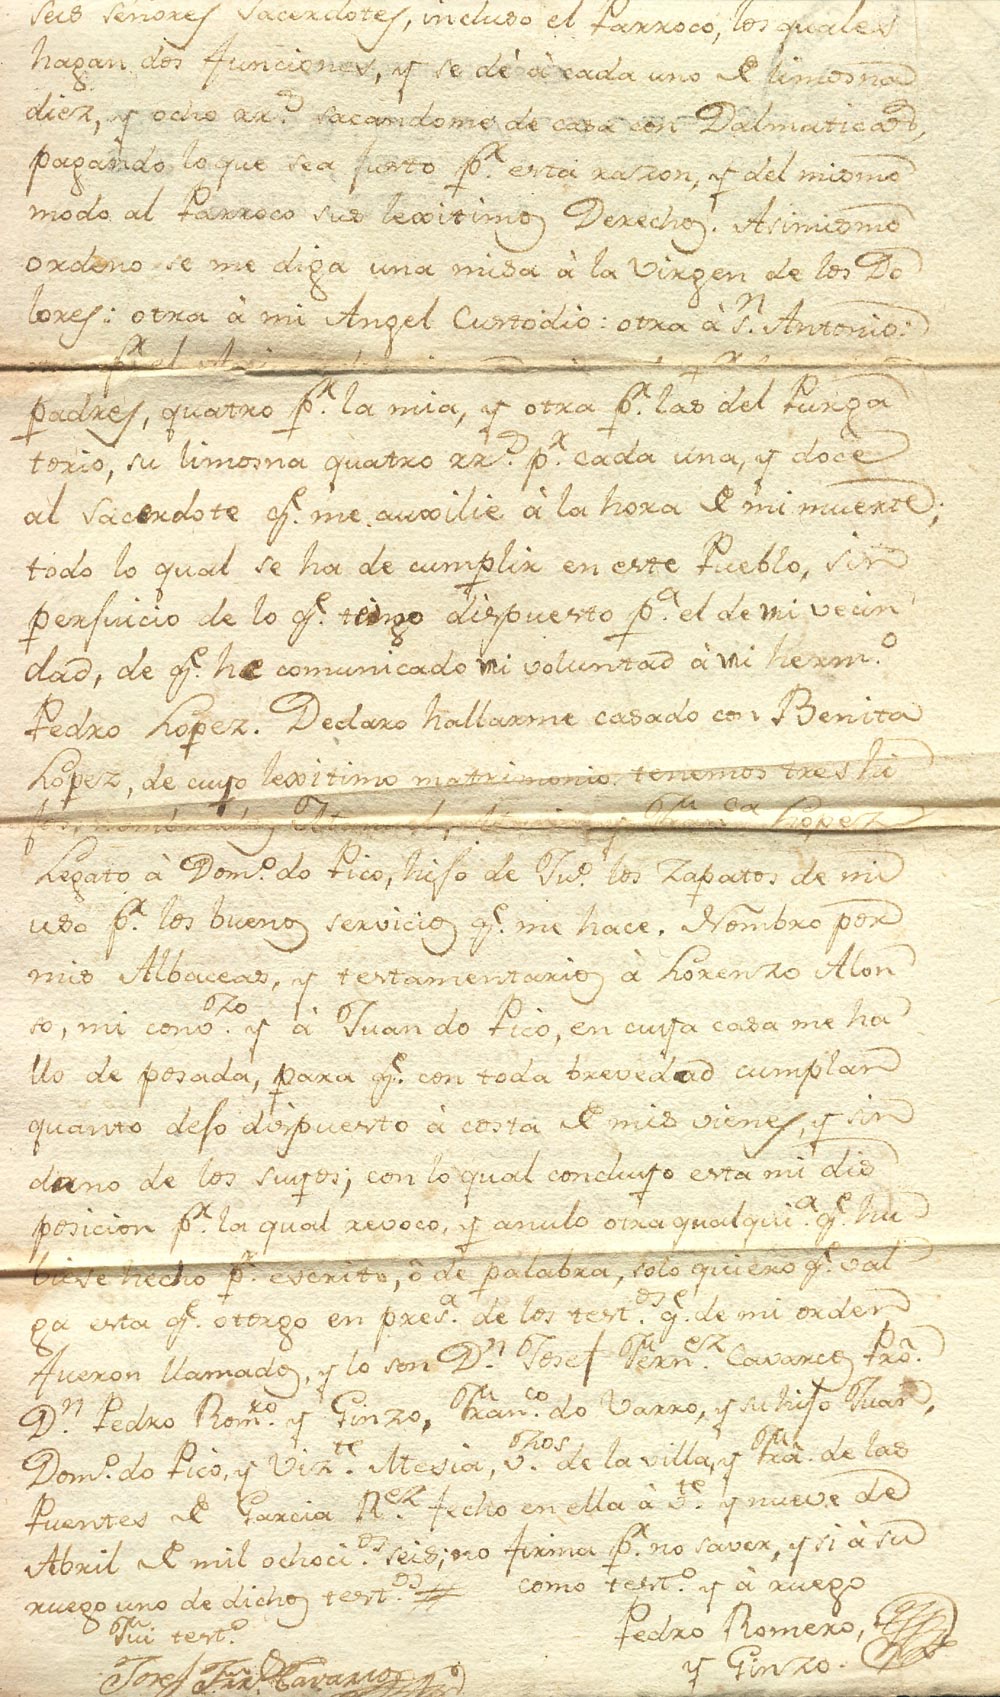 seis señores Sacerdotes, incluso el Parroco, los quales
hagan dos funciones, y se dé à cada uno de limosna
diez, y ocho rr.s sacandome de casa con Dalmaticas,
pagando lo que sea justo p.r esta raszon, y del mismo
modo al Parroco sus lexitimos Derechos. Asimismo
ordeno se me diga una misa à la Virgen de los Do
lores: otra à mi Angel Custodio: otra à S.n Antonio:
p.r el
padres, quatro p.r la mia, y otra p.r las del Purga
torio, su limosna quatro rr.s p.r cada una, y doce
al sacerdote q.e me auxilie à la hora de mi muerte;
todo lo qual se ha de cumplir en este Pueblo, sin
perjuicio de lo q.e tengo dispuesto p.a el de mi vecin
dad, de q.e he comunicado mi voluntad à mi herm.o
Pedro Lopez. Declaro hallarme casado con Benita
Lopez, de cuyo lexitimo matrimonio tenemos tres hi
y Fran.ca Lopez
Legato à Dom.o do Pico, hijo de Ju.o los zapatos de mi
uso p.r los buenos servicios q.e me hace. Nombro por
mis Albaceas, y testamentarios à Lorenzo Alon
so, mi conv.zo y à Juan do Pico, en cuya casa me ha
llo de posada, para q.e con toda brevedad cumplan
quanto dejo dispuesto à costa de mis vienes, y sin
dano de los suyos; con lo qual concluyo esta mi dis
posicion p.r la qual revoco, y anulo otra qualqui.a q.e hu
biese hecho p.r escrito, ô de palabra, solo quiero q.e val
ga esta q.e otorgo en pres.a de los test.os q.e de mi orden
fueron llamados, y lo son D.n Josef Fern.ez Cavarcos Pro.
D.n Pedro Rom.ro y Ginzo, Fran.co do Varro, y su hijo Juan,
Dom.o do Pico, y Viz.te Mesia, v.os de la villa, y fra. de las
Puentes de Garcia R.ez fecho en ella à v.te y nueve de
Abril de mil ochoci.os seis; no firma p.r no saver, y si à su
ruego uno de dichos test.os como test.o y à ruego
Fui test.o
Pedro Romero,
y Ginzo.
Josef Frn. Cavarcos